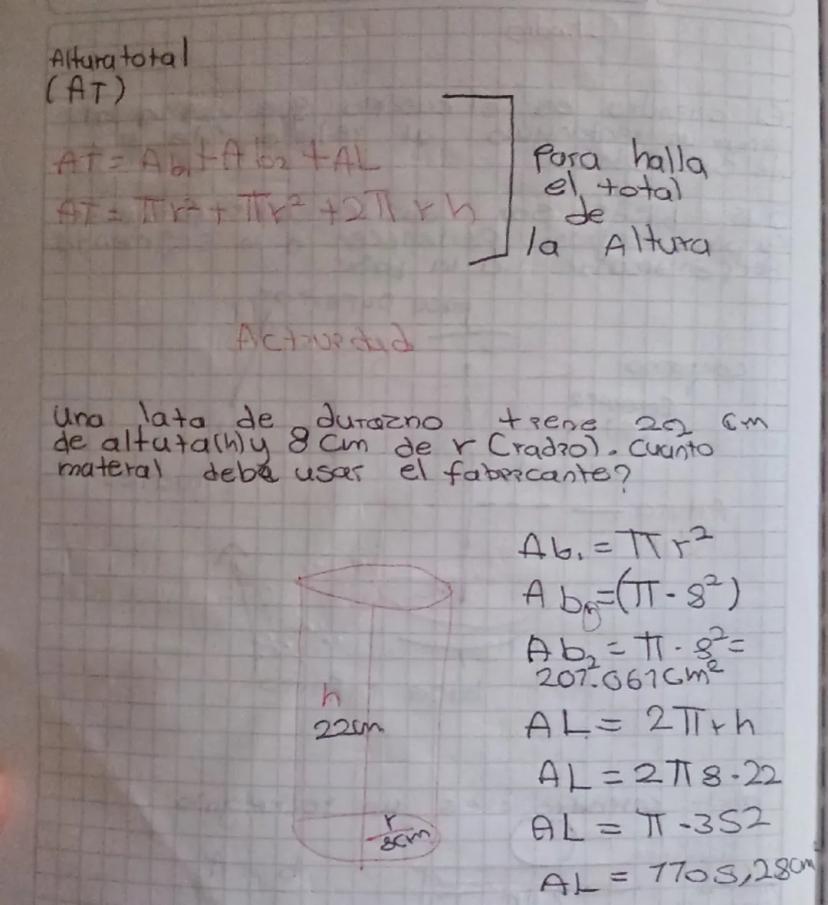 Altura total
(AT)
AT = Ab1 + Ab2 + AL
AT = πr² + πr² + 2πrh
Para halla
el total
de
la Altura
Actividad
Una lata de durazno tiene 22 cm
de altuta(h) y 8 cm de r (radio). Cuanto
materal debe usar el fabricante?
h
22cm
r
8cm
Ab1 = πr²
Ab=(π·8²)
Ab2 = π·8²=
201.061cm²
AL = 2πrh
AL = 2π8·22
AL = π·352
AL = 1105,28cm²